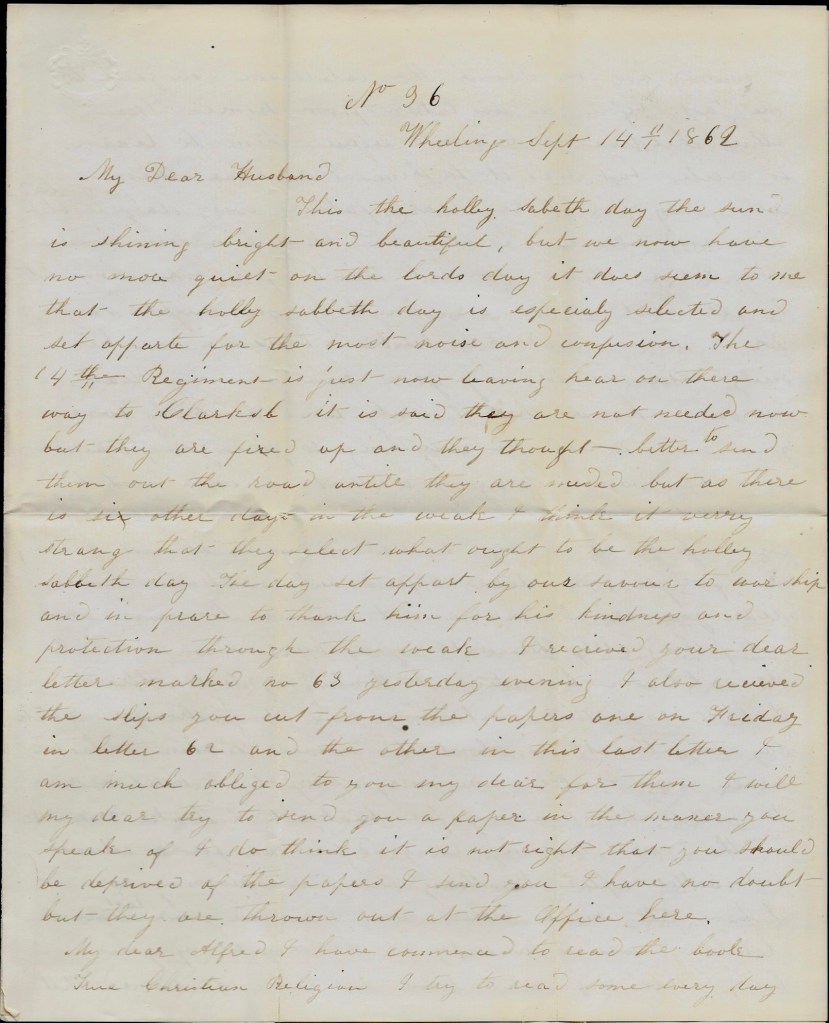 No 36
Wheeling Sept 14th 1862
My Dear Husband
This the holley sabeth day the sun
is shining bright and beautiful, but we now have
no more quiet on the lords day it does seem to me
that the holly sabbeth day is especialy selected and
set apparte for the most noise and confusion. The
14th Regiment is just now leaving hear on there
way to Clarksb it is said they are not needed now
but they are fixed up and they thought better to send
them out the road untill they are needed but as there
is six other days in the weak I think it verry
strang that they select what ought to be the holley
sabbeth day The day set appart by our savour to worship
and in prare to thank him for his kindness and
protection through the weak I recieved your dear
letter marked no 63 yesterday evening I also recieved
the slips you cut from the papers one on Friday
in letter 62 and the other in this last letter I
am much obliged to you my dear for them I will
my dear try to send you a paper in the maner you
speak of I do think it is not right that you should
be deprived of the papers I send you I have no doubt
but they are thrown out at the Office here.
My dear Alfred I have commenced to read the book
True Christian Religion I try to read some every day